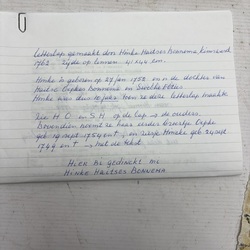 Letterlap gemaakt door Hinke Haitses Bonnema Kimswerd
1762. zijde op linnen. 41 x 41 cm.
Hinke is geboren op 25 jan 1752 en is de dochter van
Haitse Orphes Bonnema en
Hinke was dus 10 jaar toen ze deze letterlap maakte
H O en S H op de lap → de ouders
Bovendien noemt ze haar
geb. 19 sept 1754 en † en zusje Hinke geb. 24 sept
1749 en † → met de tekst
Hier bij gedinckt mi
Hinke Haitses Bonnema